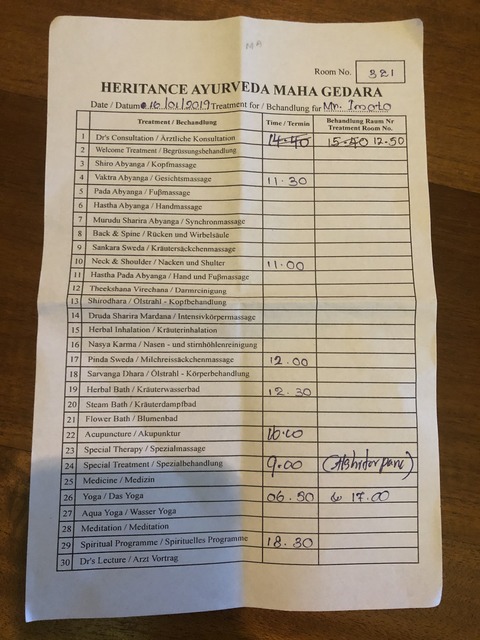 Room No. 321
HERITANCE AYURVEDA MAHA GEDARA
Date / Datum 16/01/2019 Treatment for / Behandlung für Mr.
Treatment / Bechandlung Time / Termin Behandlung Raum Nr Treatment Room No.
1 Dr's Consultation / Ärztliche Konsultation 14.40 15.40 12.50
2 Welcome Treatment / Begrüssungsbehandlung
3 Shiro Abyanga / Kopfmassage
4 Vaktra Abyanga / Gesichtsmassage 11.30
5 Pada Abyanga / Fußmassage
6 Hastha Abyanga / Handmassage
7 Murudu Sharira Abyanga / Synchronmassage
8 Back & Spine / Rücken und Wirbelsäule
9 Sankara Sweda / Kräutersäckchenmassage
10 Neck & Shoulder / Nacken und Shulter 11.00
11 Hastha Pada Abyanga / Hand und Fußmassage
12 Theekshana Virechana / Darmreinigung
13 Shirodhara / Ölstrahl - Kopfbehandlung
14 Druda Sharira Mardana / Intensivkörpermassage
15 Herbal Inhalation / Kräuterinhalation
16 Nasya Karma / Nasen - und stirnhöhlenreinigung
17 Pinda Sweda / Milchreissäckchenmassage 12.00
18 Sarvanga Dhara / Ölstrahl - Körperbehandlung
19 Herbal Bath / Kräuterwasserbad 12.30
20 Steam Bath / Kräuterdampfbad
21 Flower Bath / Blumenbad
22 Acupuncture / Akupunktur
23 Special Therapy / Spezialmassage
24 Special Treatment / Spezialbehandlung 9.00
25 Medicine / Medizin
26 Yoga / Das Yoga 06.50 17.00
27 Aqua Yoga / Wasser Yoga
28 Meditation / Meditation
29 Spiritual Programme / Spirituelles Programme 18.30
30 Dr's Lecture / Arzt Vortrag